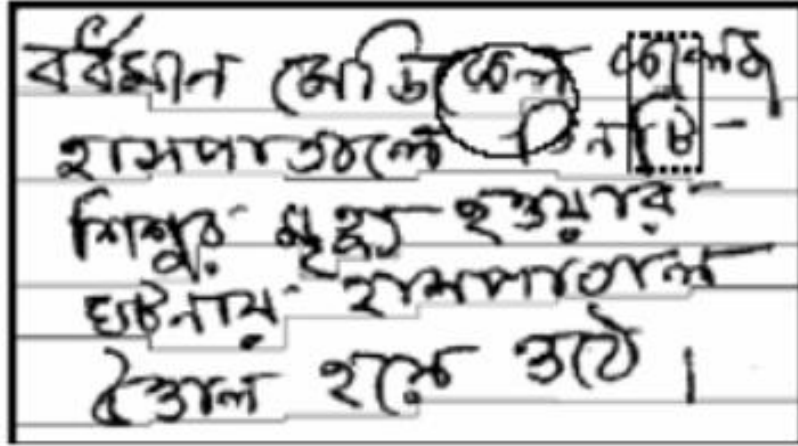 বর্ধমান মেডিকেল কলেজ
হাসপাতালে তিনটি
শিশুর মৃত্যু হওয়ার
ঘটনায় হাসপাতাল
উত্তাল হয়ে ওঠে।